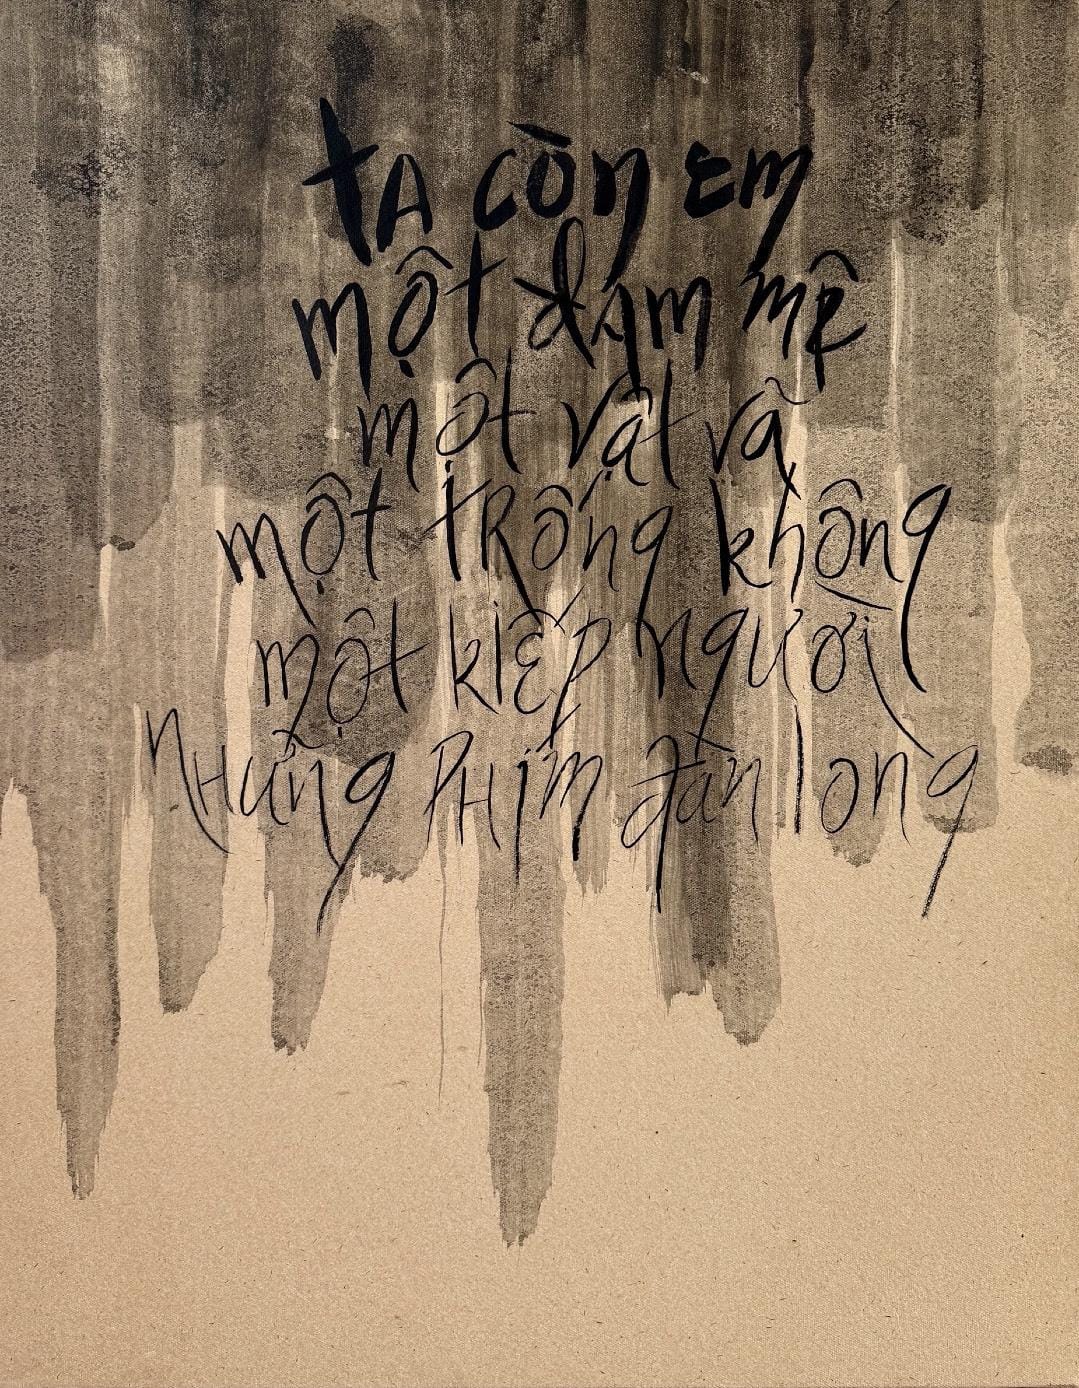 ta còn em
một đam mê
một vật vã
một trống không
một kiếp người
những phím đàn long